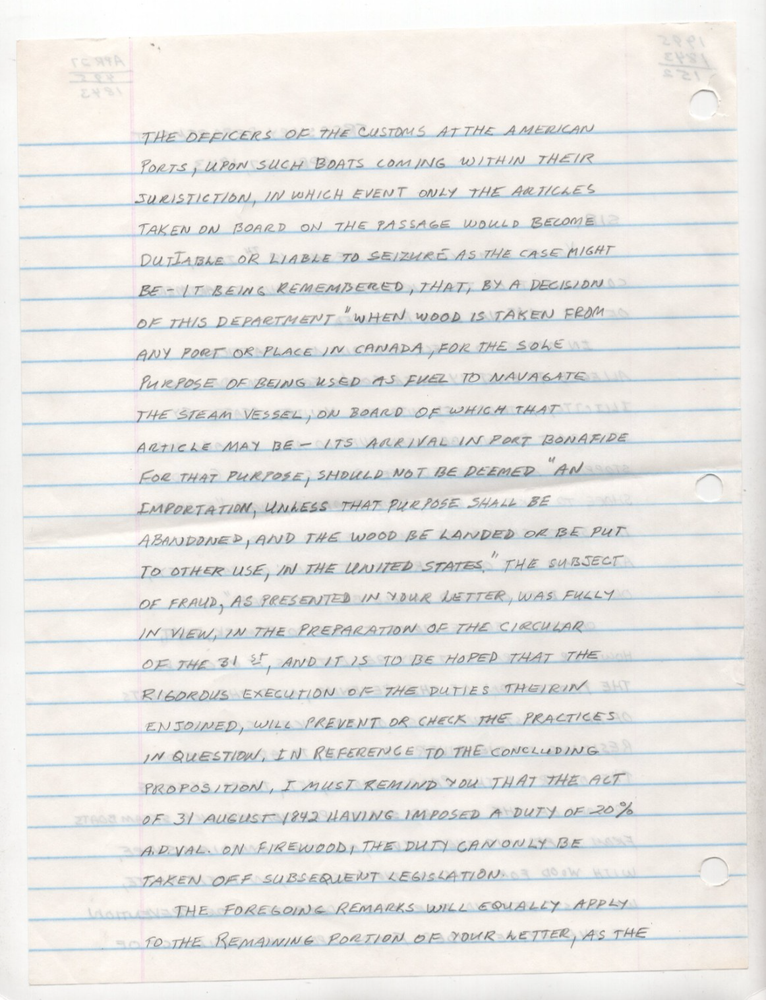 THE OFFICERS OF THE CUSTOMS AT THE AMERICAN
PORTS, UPON SUCH BOATS COMING WITHIN THEIR
JURISTICTION, IN WHICH EVENT ONLY THE ARTICLES
TAKEN ON BOARD ON THE PASSAGE WOULD BECOME
DUTIABLE OR LIABLE TO SEIZURE AS THE CASE MIGHT
BE - IT BEING REMEMBERED, THAT, BY A DECISION
OF THIS DEPARTMENT "WHEN WOOD IS TAKEN FROM
ANY PORT OR PLACE IN CANADA, FOR THE SOLE
PURPOSE OF BEING USED AS FUEL TO NAVAGATE
THE STEAM VESSEL, ON BOARD OF WHICH THAT
ARTICLE MAY BE - ITS ARRIVAL IN PORT BONAFIDE
FOR THAT PURPOSE, SHOULD NOT BE DEEMED "AN
IMPORTATION, UNLESS THAT PURPOSE SHALL BE
ABANDONED, AND THE WOOD BE LANDED OR BE PUT
TO OTHER USE, IN THE UNITED STATES." THE SUBJECT
OF FRAUD, AS PRESENTED IN YOUR LETTER, WAS FULLY
IN VIEW, IN THE PREPARATION OF THE CIRCULAR
OF THE 31 ST, AND IT IS TO BE HOPED THAT THE
RIGOROUS EXECUTION OF THE DUTIES THEIRIN
ENJOINED, WILL PREVENT OR CHECK THE PRACTICES
IN QUESTION. IN REFERENCE TO THE CONCLUDING
PROPOSITION, I MUST REMIND YOU THAT THE ACT
OF 31 AUGUST 1842 HAVING IMPOSED A DUTY OF 20%
A.D.VAL. ON FIREWOOD, THE DUTY CAN ONLY BE
TAKEN OFF SUBSEQUENT LEGISLATION.
THE FOREGOING REMARKS WILL EQUALLY APPLY
TO THE REMAINING PORTION OF YOUR LETTER, AS THE